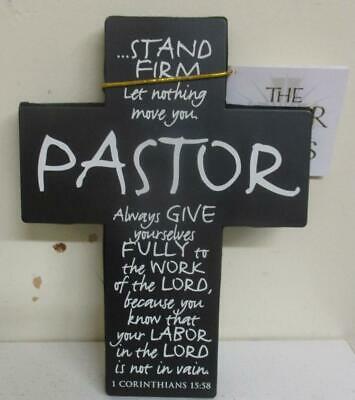 ...STAND
FIRM
Let nothing
move you.
PASTOR
Always GIVE
yourselves
FULLY to
the WORK
of the LORD,
because you
know that
your LABOR
in the LORD
is not in vain.
1 CORINTHIANS 15:58
THE